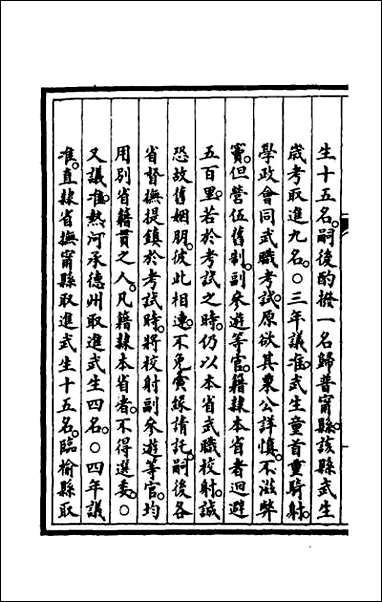 生十五名。嗣後酌撥一名歸普甯縣。該縣武生
歲考取進九名。○三年議准。武生童首重騎射。
學政會同武職考試。原欲其秉公詳慎。不滋弊
竇。但營伍舊制。副叅遊等官。籍隷本省者迴避
五百里。若於考試之時。仍以本省武職校射。誠
恐故舊姻朋。彼此相連。不免夤緣請託。嗣後各
省督撫提鎮於考試時。將校射副叅遊等官。均
用別省籍貫之人。凡籍隷本省者。不得選委。○
又議准。熱河承德州取進武生四名。○四年議
准。直隷省撫甯縣取進武生十五名。臨榆縣取